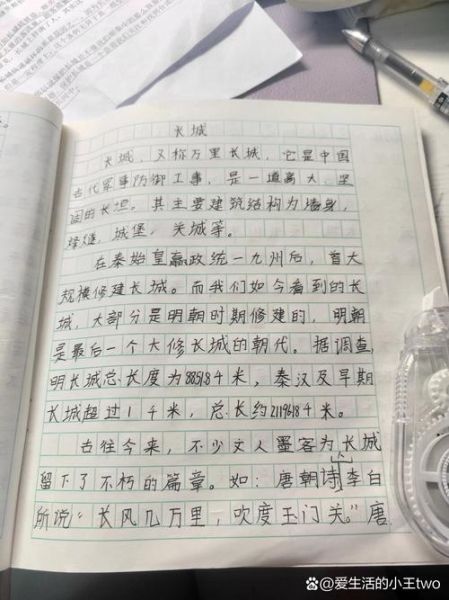 长城
长城，又称万里长城，它是中国
古代军事防御工事，是一道高大、坚
固的长垣。其主要建筑结构为墙身，
烽燧，城堡，关城等。
在秦始皇嬴政统一九州后，首大
规模修建长城。而我们如今看到的长
城，大部分是明朝时期修建的，明朝
是最后一个大修长城的朝代。据调查，
明长城总长度为8851.8千米，秦汉及早期
长城超过1千米，总长约21196.18千米。
古往今来，不少文人墨客为长城
留下了不朽的篇章。如：唐朝诗人李白
所说“长风几万里，吹度玉门关。”唐
@爱生活的小王two